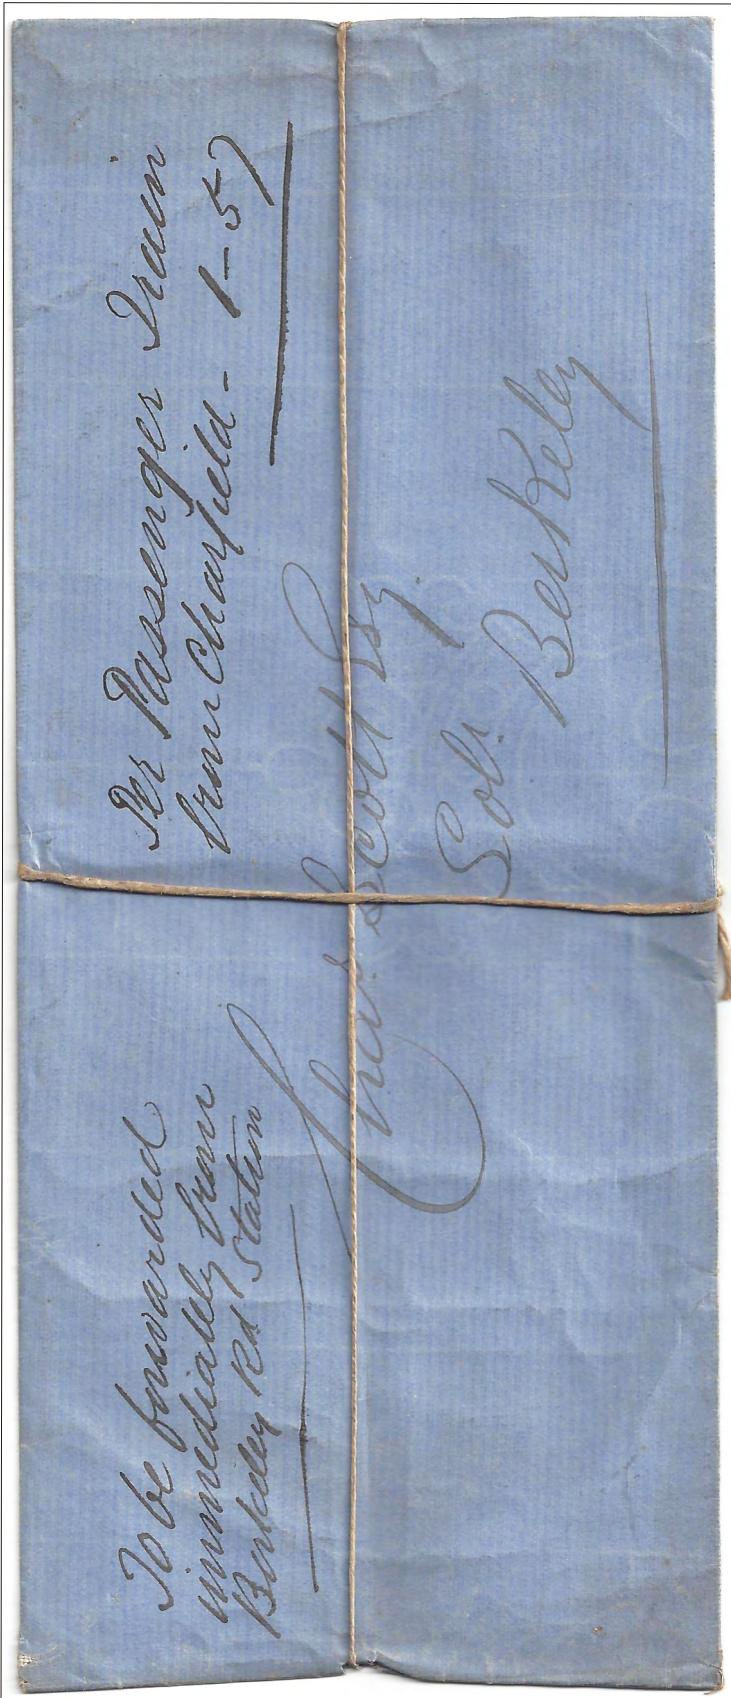 To be forwarded
immediately from
Berkeley Rd Station
Per Passenger Train
from Charfield - 1-57
Chas. Scott Esq
Solr. Berkeley